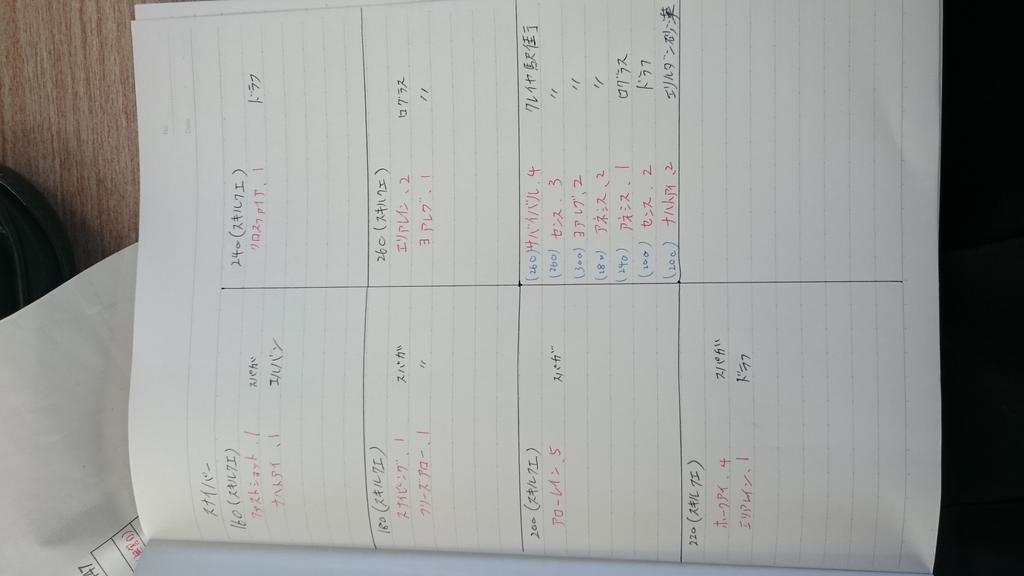 スナイパー
160(スキルクエ)
ファストショット.1 スパガ
ナハトアイ.1 エルパン
180(スキルクエ)
スナイピング.1 スパガ
フリーズアロー.1 〃
200(スキルクエ)
アローレイン.5 スパガ
220(スキルクエ)
ホークアイ.4 スパガ
エリアレイン.1 ドラフ
240(スキルクエ)
クロスファイア.1 ドラフ
260(スキルクエ)
エリアレイン.2 ログラス
ヨアレグ.1 〃
(260)サバイバル.4 クレイヤ駅住宁
(260)センス.3 〃
(300)ヨアレグ.2 〃
(280)アネシス.2 〃
(240)アネシス.1 ログラス
(200)センス.2 ドラフ
(200)ナハトアイ.2 エリルダン砂漠